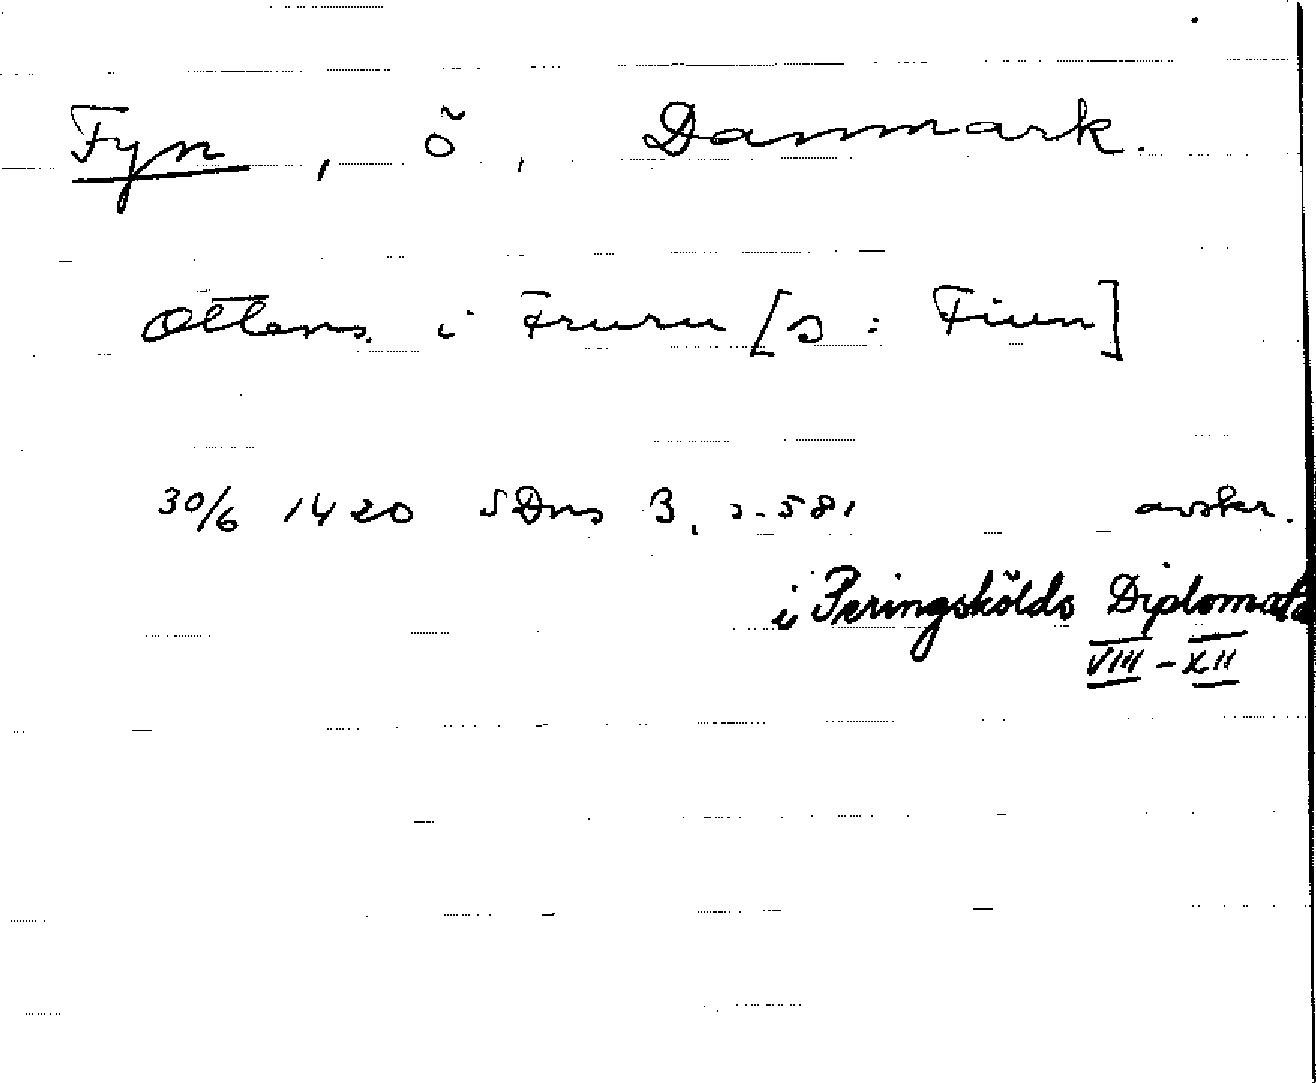 Fyn, ö, Danmark.
Ottens. i Fruru [s: Fiun]
30/6 1420 SDns 3, s. 581 avskr.
i Peringskölds Diplomat
VIII - XII